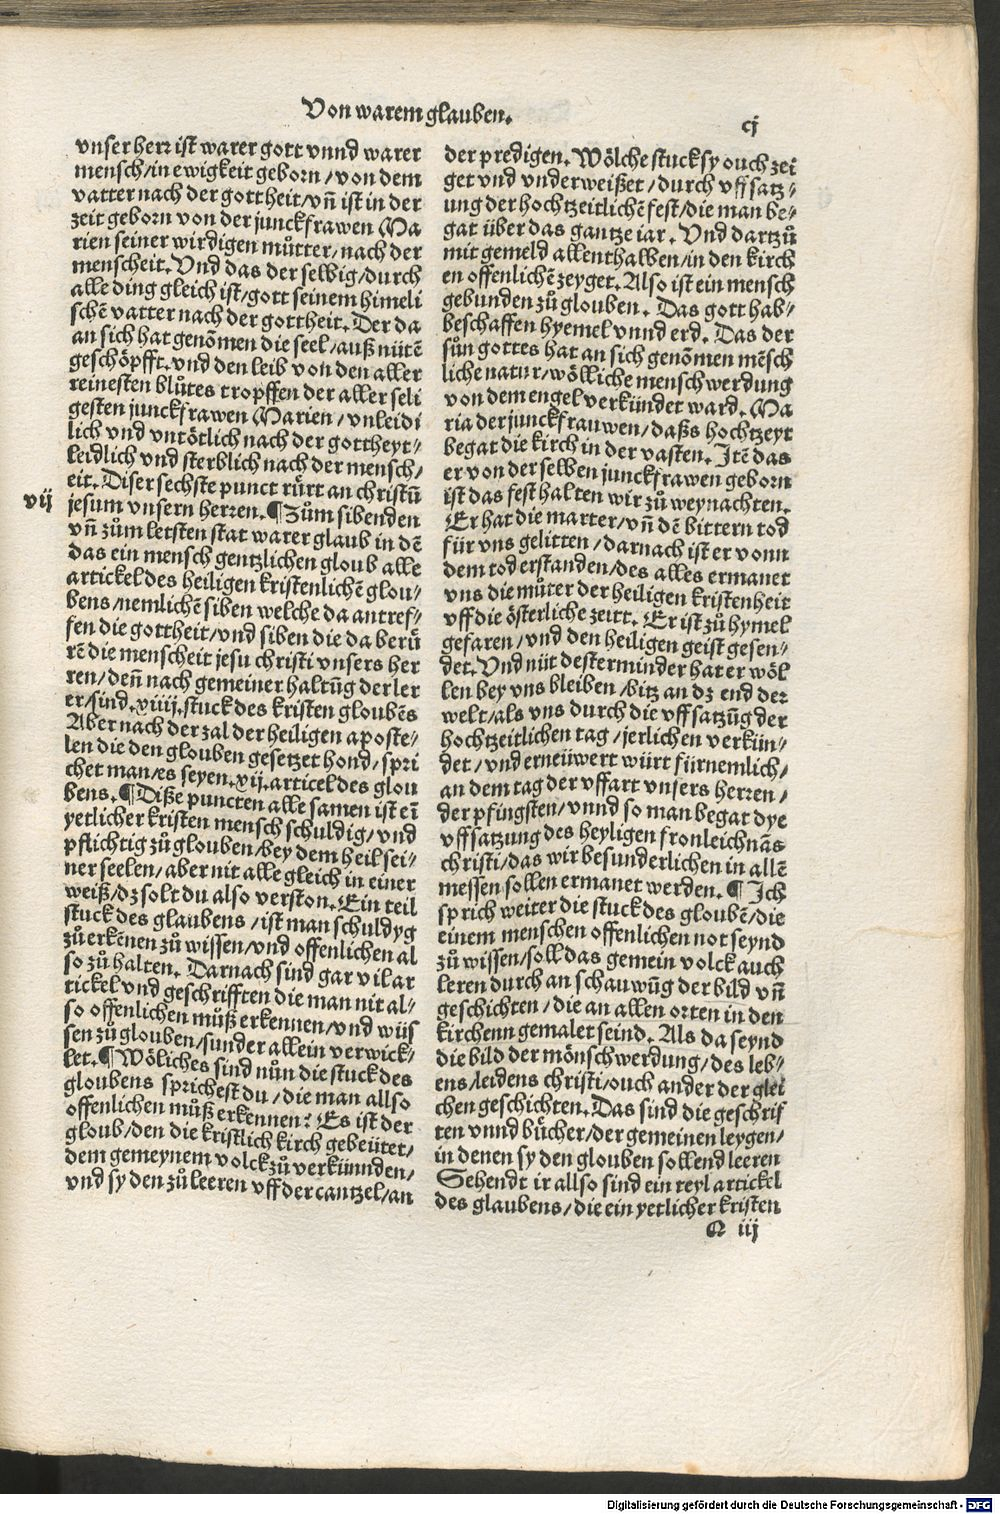 Von warem glauben.
cj
vnser herr ist warer gott vnnd warer
mensch/in ewigkeit geborn/von dem
vatter nach der gottheit/vn̄ ist in der
zeit geborn von der junckfrawen Ma
rien seiner wirdigen můtter/nach der
menscheit. Vnd das der selbig/durch
alle ding gleich ist/gott seinem himeli
schē vatter nach der gottheit. Der da
an sich hat genōmen die seel/auß nütē
geschöpfft. vnd den leib von den aller
reinesten blůtes tropffen der aller seli
gesten junckfrawen Marien/vnleidi
lich vnd vntötlich nach der gottheyt/
leidlich vnd sterblich nach der mensch/
eit. Diser sechste punct rürt an christū
vij
jesum vnsern herren. ¶ Zům sibenden
vn̄ zům letsten stat warer glaub in dē
das ein mensch gentzlichen gloub alle
artickel des heiligen kristenlichē glou/
bens/nemlichē siben welche da antref/
fen die gottheit/vnd siben die da berü
rē die menscheit jesu christi vnsers her
ren/den̄ nach gemeiner haltūg der ler
er/sind .xiiij. stuck des kristen gloubēs
Aber nach der zal der heiligen aposte/
len die den glouben gesetzet hond/spri
chet man/es seyen .xij. articel des glou
bens. ¶ Diße puncten alle samen ist eī
yetlicher kristen mensch schuldig/vnd
pflichtig zů glouben/bey dem heil sei/
ner seelen/aber nit alle gleich in einer
weiß/dz solt du also verston. Ein teil
stuck des glaubens/ist man schuldyg
zů erkēnen zů wissen/vnd offenlichen al
so zů halten. Darnach sind gar vil ar
tickel vnd geschrifften die man nit al/
so offenlichen můß erkennen/vnd wüs
sen zů glouben/sunder allein verwick/
let. ¶ Wöliches sind nůn die stuck des
gloubens sprichest du/die man allso
offenlichen můß erkennen? Es ist der
gloub/den die kristlich kirch gebeütet/
dem gemeynem volck zů verkünnden/
vnd sy den zů leeren vff der cantzel/an
der predigen. Wölche stuck sy ouch zei
get vnd vnderweißet/durch vffsatz/
ung der hochtzeitlichē fest/die man be/
gat über das gantze iar. Vnd dartzů
mit gemeld allenthalben/in den kirch
en offenlichē zeyget. Also ist ein mensch
gebunden zů glouben. Das gott hab/
beschaffen hyemel vnnd erd. Das der
sůn gottes hat an sich genōmen mēsch
liche natur/wölliche menschwerdung
von dem engel verkündet ward. Ma
ria der junckfrauwen/daßs hochtzeyt
begat die kirch in der vasten. Itē das
er von der selben junckfrawen geborn
ist das fest halten wir zů weynachten.
Er hat die marter/vn̄ dē bittern tod
für vns gelitten/darnach ist er vonn
dem tod erstanden/des alles ermanet
vns die můter der heiligen kristenheit
vff die österliche zeitt. Er ist zů hymel
gefaren/vnd den heiligen geist gesen/
det. Vnd nüt desterminder hat er wöl
len bey vns bleiben/bitz an dz end der
welt/als vns durch die vffsatzūg der
hochtzeitlichen tag/jerlichen verkün/
det/vnd erneüwert würt fürnemlich/
an dem tag der vffart vnsers herren/
der pfingsten/vnnd so man begat dye
vffsatzung des heyligen fronleichnās
christi/das wir besunderlichen in allē
messen sollen ermanet werden. ¶ Ich
sprich weiter die stuck des gloubē/die
einem menschen offenlichen not seynd
zů wissen/soll das gemein volck auch
leren durch an schauwūg der bild vn̄
geschichten/die an allen orten in den
kirchenn gemalet seind. Als da seynd
die bild der mönschwerdung/des leb/
ens/leidens christi/ouch ander der glei
chen geschichten. Das sind die geschrif
ten vnnd bücher/der gemeinen leygen/
in denen sy den glouben sollend leeren
Sehendt ir allso sind ein teyl artickel
des glaubens/die ein yetlicher kristen
Q iij
Digitalisierung gefördert durch die Deutsche Forschungsgemeinschaft - DFG